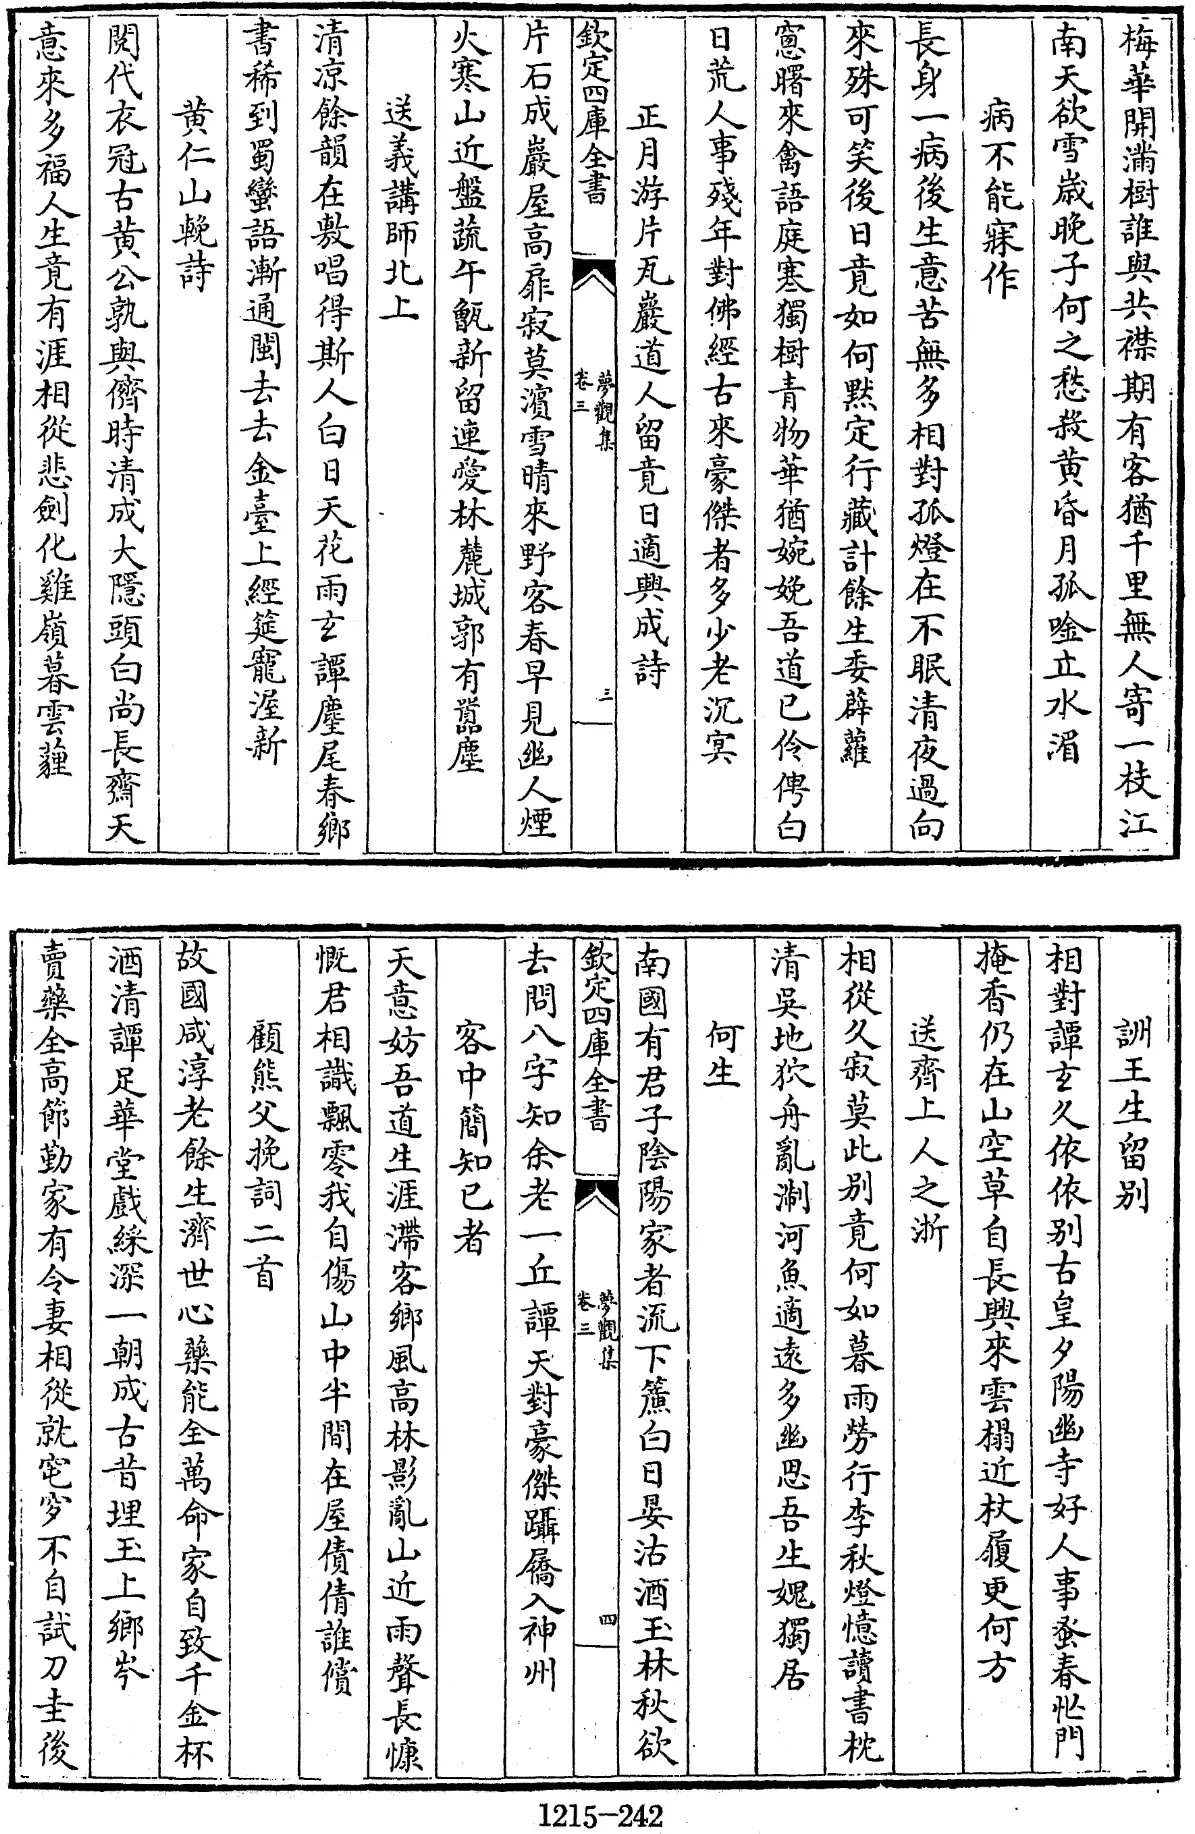 梅華開滿樹誰與共襟期有客猶千里無人寄一枝江
南天欲雪歲晚子何之愁殺黄昏月孤唫立水湄
病不能寐作
長身一病後生意苦無多相對孤燈在不眠清夜過向
來殊可笑後日竟如何黙定行藏計餘生委薜蘿
窻曙來禽語庭寒獨樹青物華猶婉娩吾道已伶俜白
日荒人事殘年對佛經古來豪傑者多少老沉㝠
正月游片瓦巖道人留竟日適興成詩
欽定四庫全書
夢觀集
卷三
三
片石成巖屋高扉寂莫濵雪晴來野客春早見幽人煙
火寒山近盤蔬午甑新留連愛林麓城郭有嚣塵
送義講師北上
清凉餘韻在敷唱得斯人白日天花雨玄譚麈尾春鄉
書稀到蜀蠻語漸通閩去去金臺上經筵寵渥新
黄仁山輓詩
閲代衣冠古黄公孰與儕時清成大隱頭白尚長齋天
意來多福人生竟有涯相從悲劍化雞嶺暮雲薶
詶王生留别
相對譚玄久依依别古皇夕陽幽寺好人事蚤春忙門
掩香仍在山空草自長興來雲榻近杖履更何方
送齊上人之浙
相從久寂莫此别竟何如暮雨勞行李秋燈憶讀書枕
清吳地狖舟亂淛河魚適遠多幽思吾生媿獨居
何生
南國有君子陰陽家者流下簾白日晏沽酒玉林秋欲
欽定四庫全書
夢觀集
卷三
四
去問八字知余老一丘譚天對豪傑躡屩入神州
客中簡知已者
天意妨吾道生涯滯客鄉風高林影亂山近雨聲長慷
慨君相識飄零我自傷山中半間在屋債倩誰償
顧熊父挽詞二首
故國咸淳老餘生濟世心藥能全萬命家自致千金杯
酒清譚足華堂戲綵深一朝成古昔埋玉上鄉岑
賣藥全高節勤家有令妻相從就窀穸不自試刀圭後
1215-242